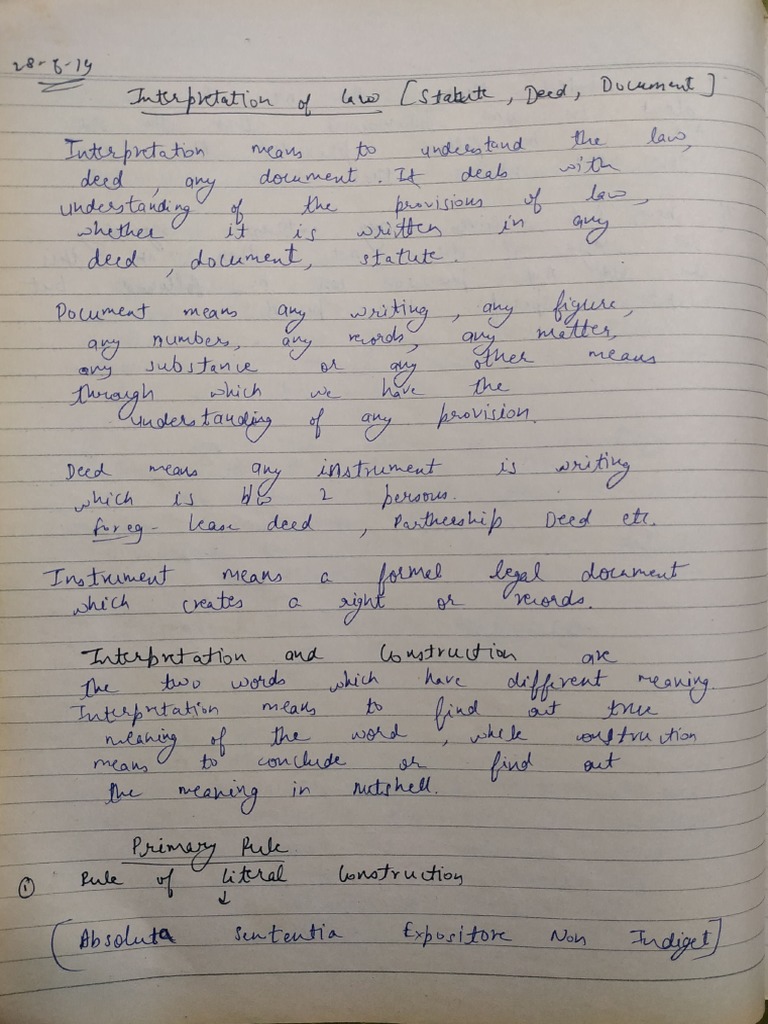 28-6-19
Interpretation of law [Statute, Deed, Document]
Interpretation means to understand the law,
deed, any document. It deals with
understanding of the provisions of law,
whether it is written in any
deed, document, statute.
Document means any writing, any figure,
any numbers, any records, any matter,
any substance or any other means
through which we have the
understanding of any provision.
Deed means any instrument is writing
which is b/w 2 persons.
for eg - lease deed, Partnership Deed etc.
Instrument means a formal legal document
which creates a right or records.
Interpretation and Construction are
the two words which have different meaning.
Interpretation means to find out true
meaning of the word, while construction
means to conclude or find out
the meaning in nutshell.
Primary Rule
① Rule of Literal Construction
↓
[Absoluta Sententia Expositore Non Indiget]